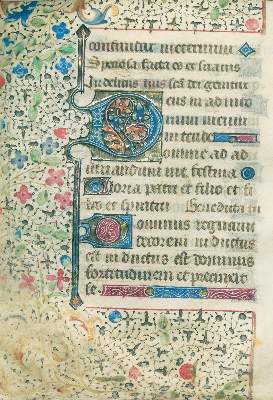 confundar in eternum
Speciosa facta es et suavis
In deliciis tuis sca dei genitrix
Deus in adiuto
rium meum
intende
Domine ad ad
iuvandum me festina
Gloria patri et filio et spi
ritui
Dominus regnavit
decorem indutus
est indutus est dominus
fortitudinem et precinxit
se